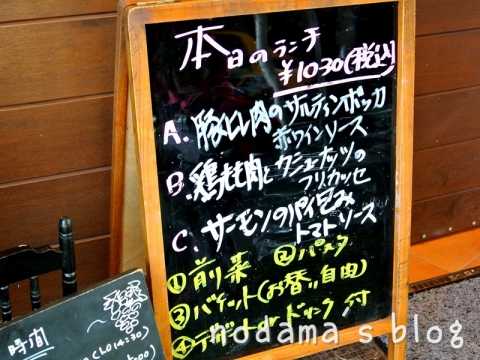 本日のランチ
¥1030(税込)
A. 豚ヒレ肉のサルティンボッカ
赤ワインソース
B. 鶏もも肉とカシューナッツの
フリカッセ
C. サーモンのパイ包み
トマトソース
①前菜 ②パスタ
③バゲット(お替り自由)
④デザート or ドリンク 付
時間
(L.O14:30)
nodama's blog